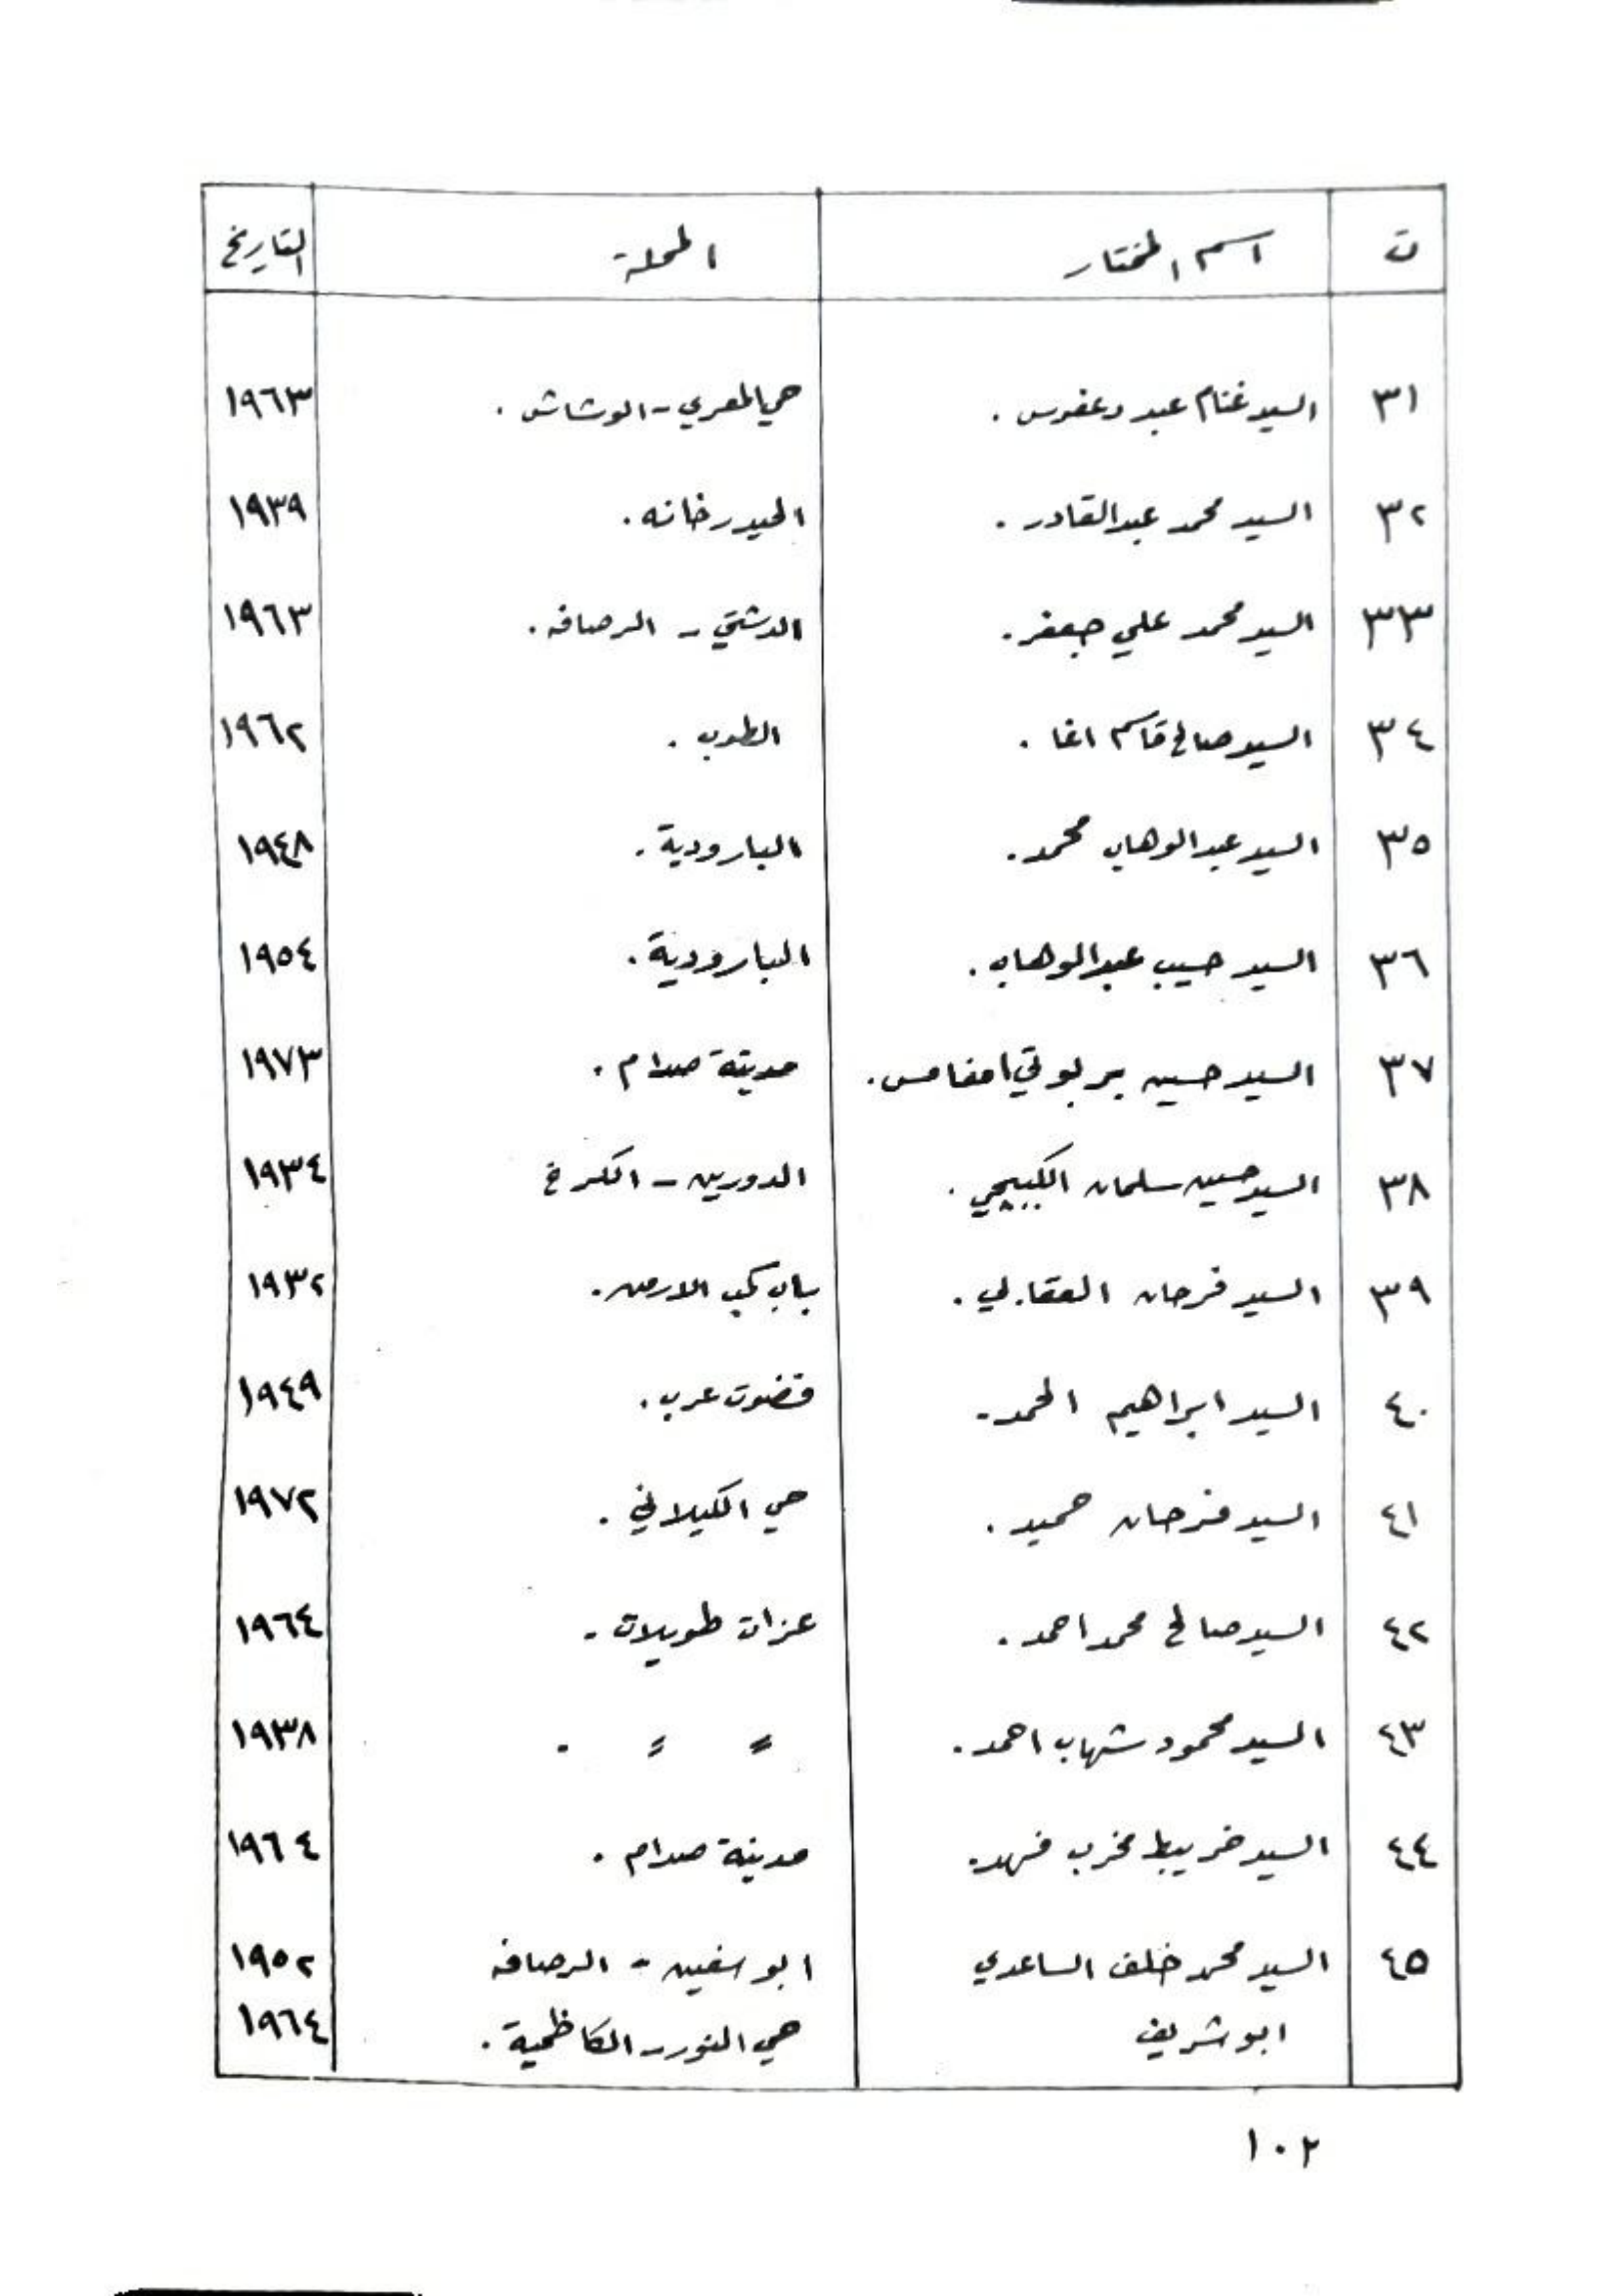 ت اسم المختار المحلة التاريخ
٣١ السيد غنام عبد دعفوس . حي المعري - الوشاش . ١٩٦٣
٣٢ السيد محمد عبدالقادر . الحيدرخانه . ١٩٣٩
٣٣ السيد محمد علي جعفر . الدشتي - الرصافه . ١٩٦٣
٣٤ السيد صالح قاسم اغا . الطوب . ١٩٦٢
٣٥ السيد عبدالوهاب محمد . البارودية . ١٩٤٨
٣٦ السيد حسيب عبدالوهاب . البارودية . ١٩٥٤
٣٧ السيد حسين مغامس . مدينة صدام . ١٩٧٣
٣٨ السيد حسين سلمان الكبيجي . الدوريين - الكرخ ١٩٣٤
٣٩ السيد فرحان العقابي . باب الارمن . ١٩٣٢
٤٠ السيد ابراهيم الحمد - عرب . ١٩٤٩
٤١ السيد فرحان حميد . حي الكيلاني . ١٩٧٢
٤٢ السيد صالح محمد احمد . عزات طويلات - ١٩٦٤
٤٣ السيد محمود شهاب احمد . 〃 〃 . ١٩٣٨
٤٤ السيد ضريبط مخرب فهد . مدينة صدام . ١٩٦٤
٤٥ السيد محمد خلف الساعدي ابو سفين - الرصافه ١٩٥٢
ابو شريف حي النور - الكاظمية . ١٩٦٤
١٠٢